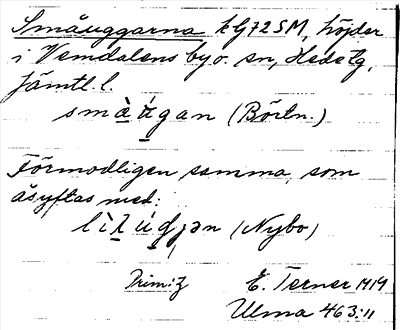 Småuggarna kG72SM, höjder
i Vemdalens by o. sn, Hede tg,
Jämtl. l.
smàúgan (Börtn.)
Förmodligen samma, som
åsyftas med:
(Nybo)
E. Terner 1919
Ulma 463:11